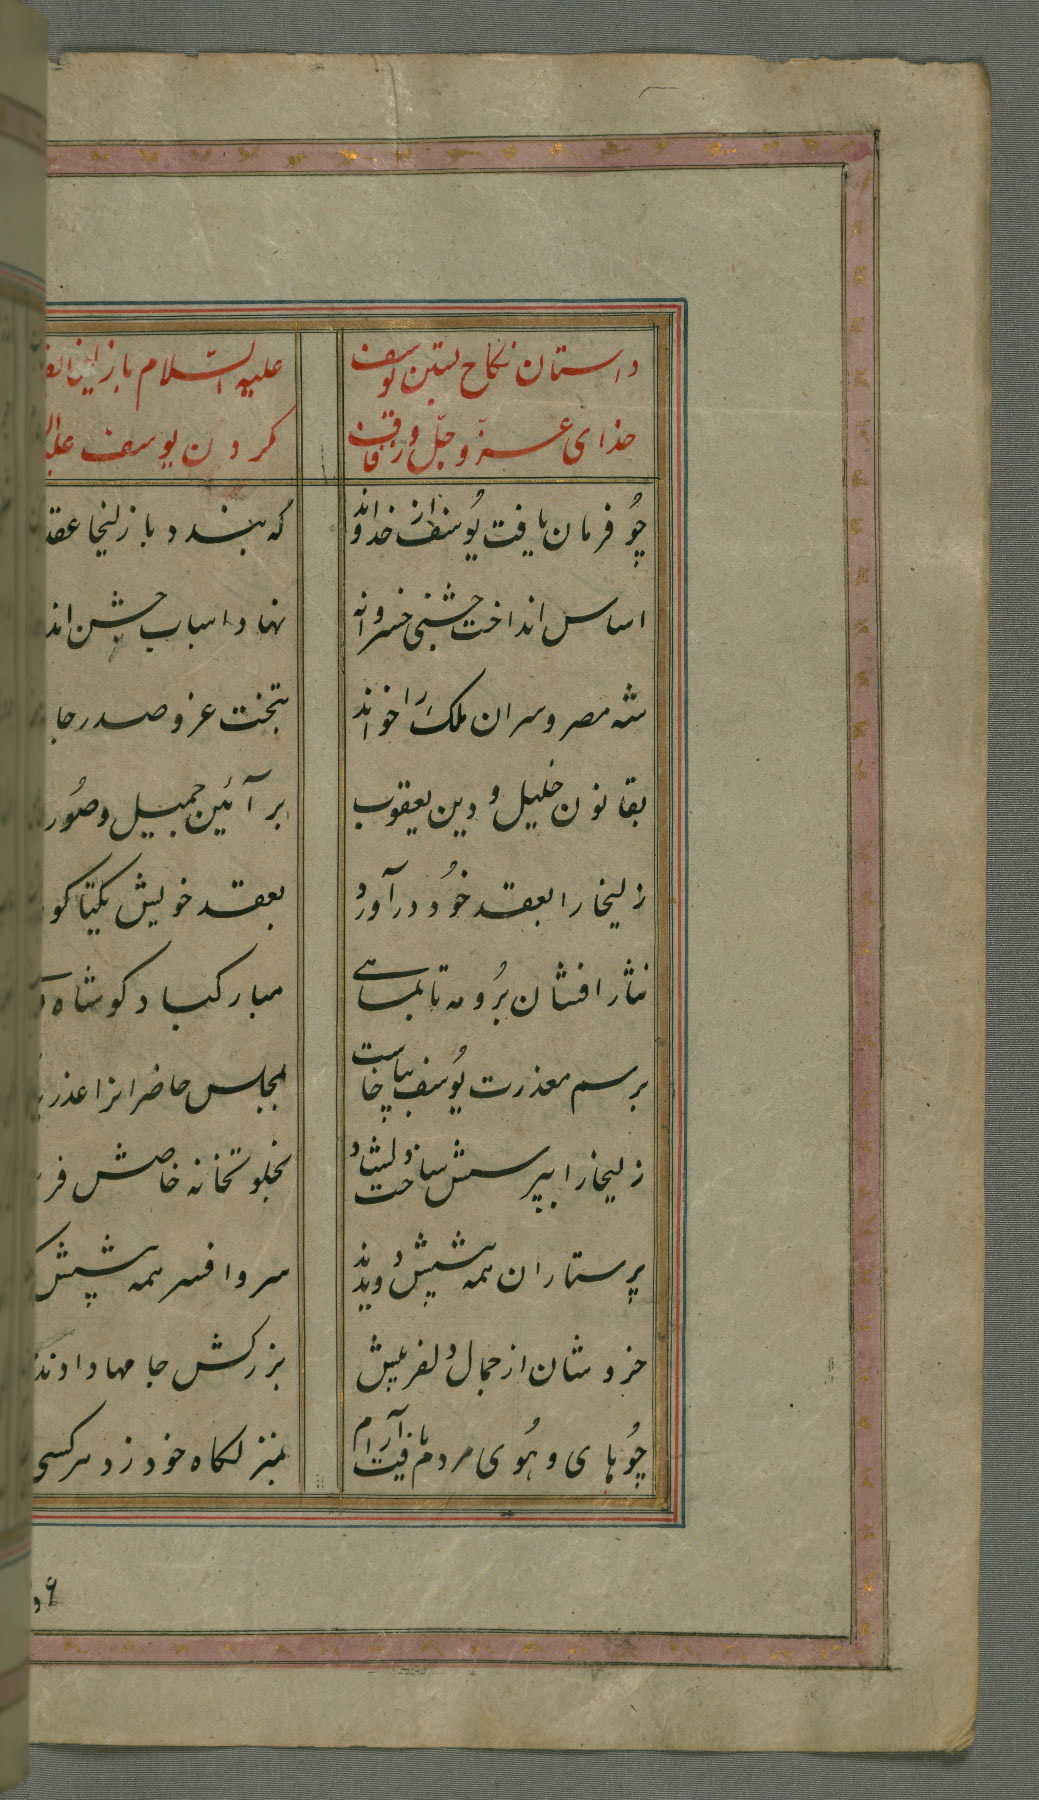 داستان نکاح بستن یوسف علیه السّلام با زلیخا
خدای عزّ و جلّ و زفاف کردن یوسف
چُو فرمان یافت یُوسف از خداوند که بندد با زلیخا عقد
اساس انداخت جشنی خسروانه نهاد اسباب جشن اندر
شه مصر و سران ملک را خواند بتخت عز و صدر جاه
بقانون خلیل و دین یعقوب بر آئین جمیل و صُورت
زلیخا را بعقد خوُد درآورد بعقد خویش یکتا گوهر
نثار افشان برُو مه تا بماهی مبارکباد گو شاه
برسم معذرت یُوسف بپا خاست بمجلس حاضرانرا عذر
زلیخا را بپرسش ساخت دلشاد بخلوتخانه خاصش
پرستاران همه پیشش دویدند سر و افسر همه پیشش
خروشان از جمال دلفریبش بزرکش جامها دادند
چُو های و هُوی مردم یافت آرام بمنزلگاه خود زد هرکسی